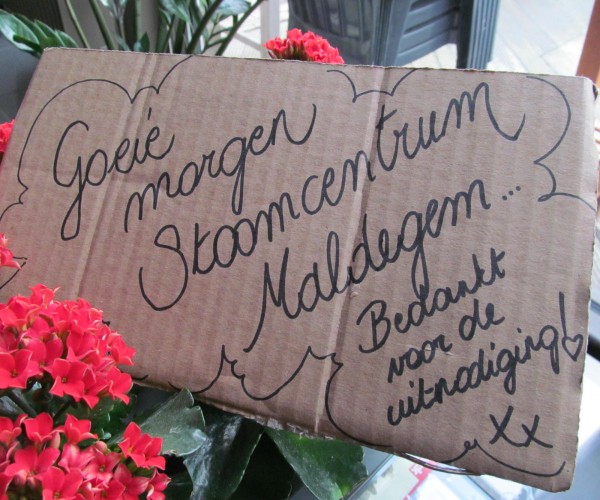 Goeie
morgen
Stoomcentrum
Maldegem...
Bedankt
voor de
uitnodiging!
xx